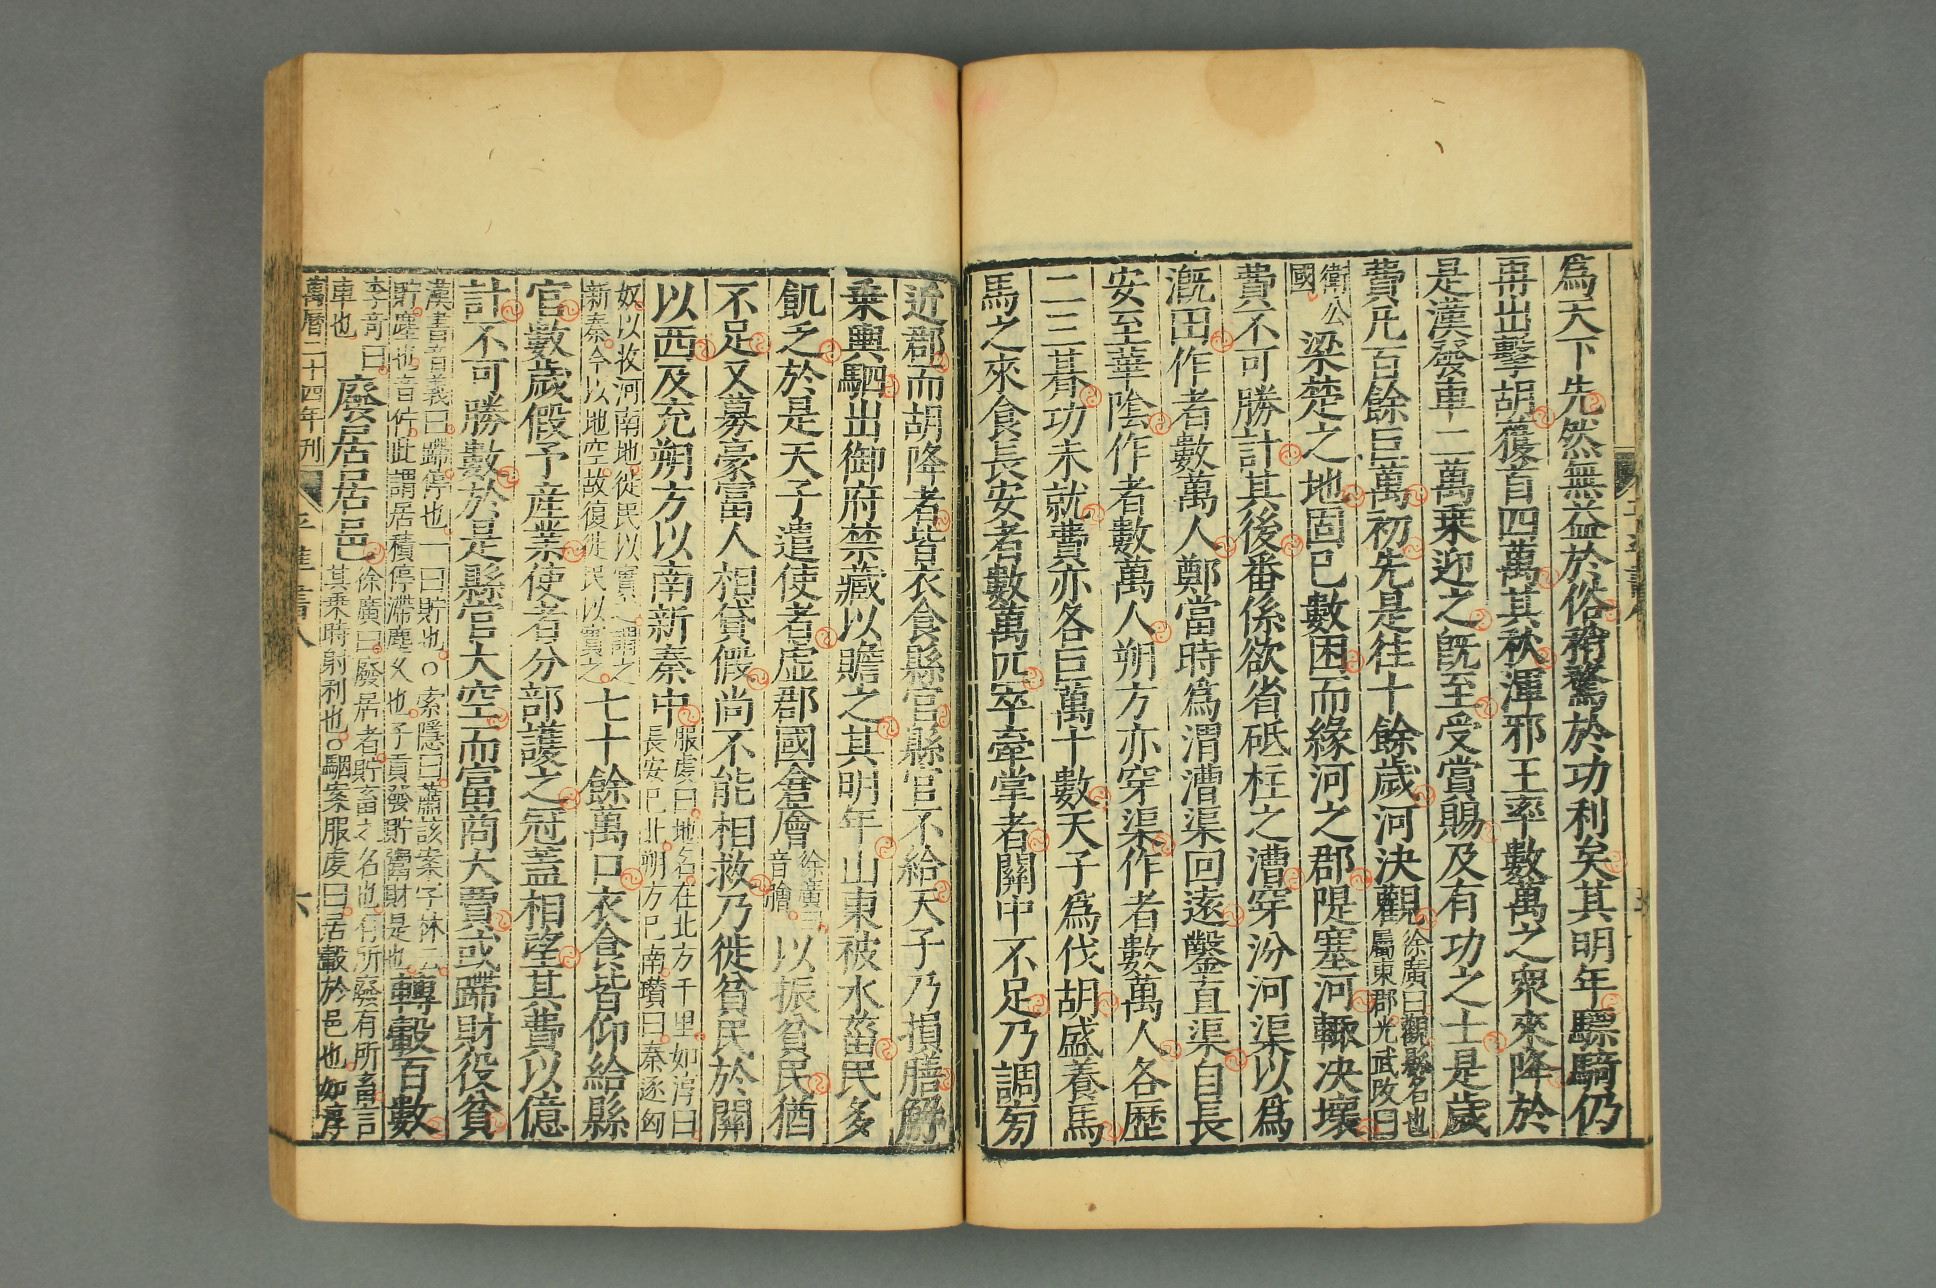 爲天下先然無益於俗稍騖於功利矣其明年驃騎仍
再出擊胡獲首四萬其秋渾邪王率數萬之衆來降於
是漢發車二萬乗迎之旣至受賞賜及有功之士是歲
費凡百餘巨萬初先是往十餘歲河決觀徐廣曰觀縣名也屬東郡光武改曰
衛公國梁楚之地固已數困而緣河之郡隄塞河輒决壞
費不可勝計其後番係欲省砥柱之漕穿汾河渠以爲
漑田作者數萬人鄭當時爲渭漕渠回遠鑿直渠自長
安至華隂作者數萬人朔方亦穿渠作者數萬人各歷
二三朞功未就費亦各巨萬十數天子爲伐胡盛養馬
馬之來食長安者數萬匹卒牽掌者關中不足乃調旁
近郡而胡降者皆衣食縣官縣官不給天子乃損膳解
乗輿駟出御府禁藏以贍之其明年山東被水菑民多
飢乏於是天子遣使者虚郡國倉廥徐廣曰音膾以振貧民猶
不足又募豪富人相貸假尚不能相救乃徙貧民於關
以西及充朔方以南新秦中服虔曰地名在北方千里如淳曰長安巳北朔方巳南瓚曰秦逐匈
奴以收河南地徙民以實之謂之新秦今以地空故復徙民以實之七十餘萬口衣食皆仰給縣
官數歲假予産業使者分部護之冠蓋相望其費以億
計不可勝數於是縣官大空而富商大賈或蹛財役貧
漢書音義曰蹛停也一曰貯也○索隱曰蕭該案字林云貯塵也音佇此謂居積停滯塵乆也子貢發貯鬻財是也轉轂百數
李竒曰車也廢居居邑徐廣曰廢居者貯畜之名也有所廢有所畜言其乗時射利也○駰案服虔曰居轂於邑也如淳
萬曆二十四年刊 平準書八 六